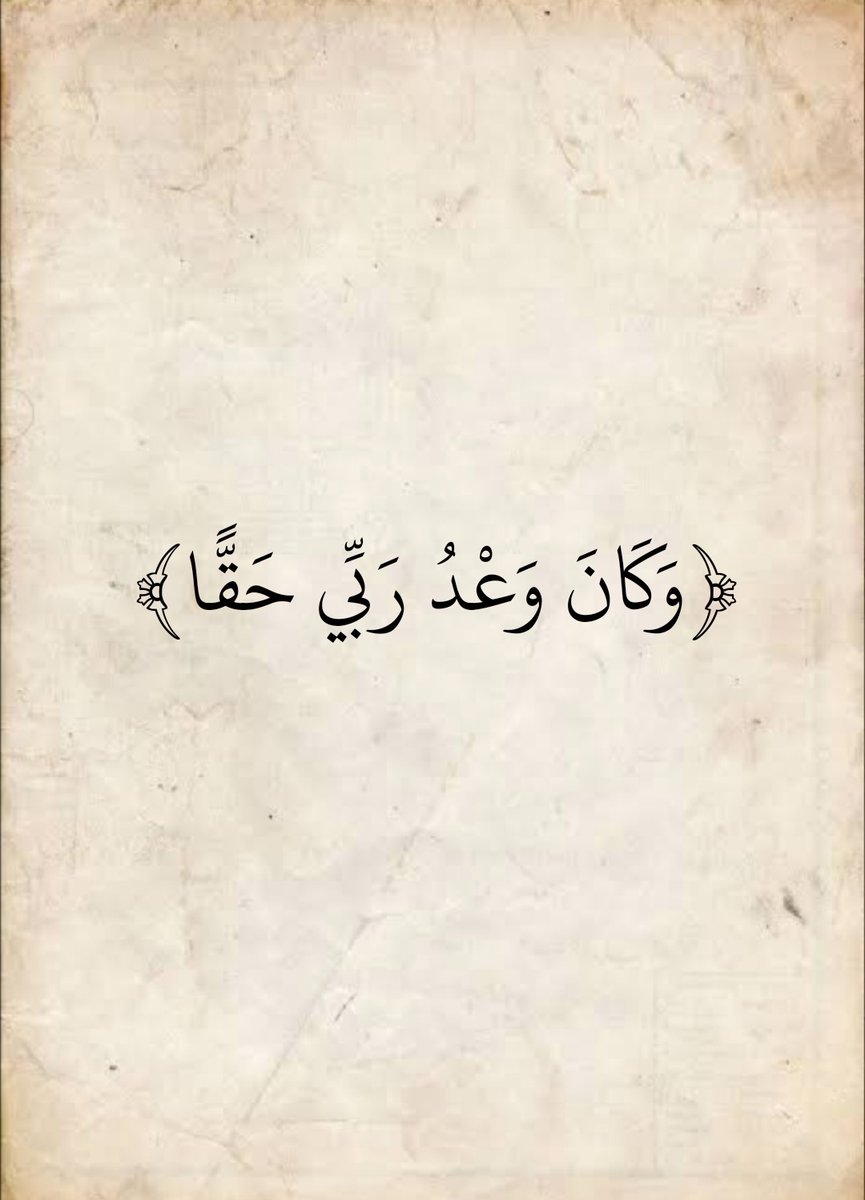 ﴿وَكَانَ وَعْدُ رَبِّي حَقًّا﴾